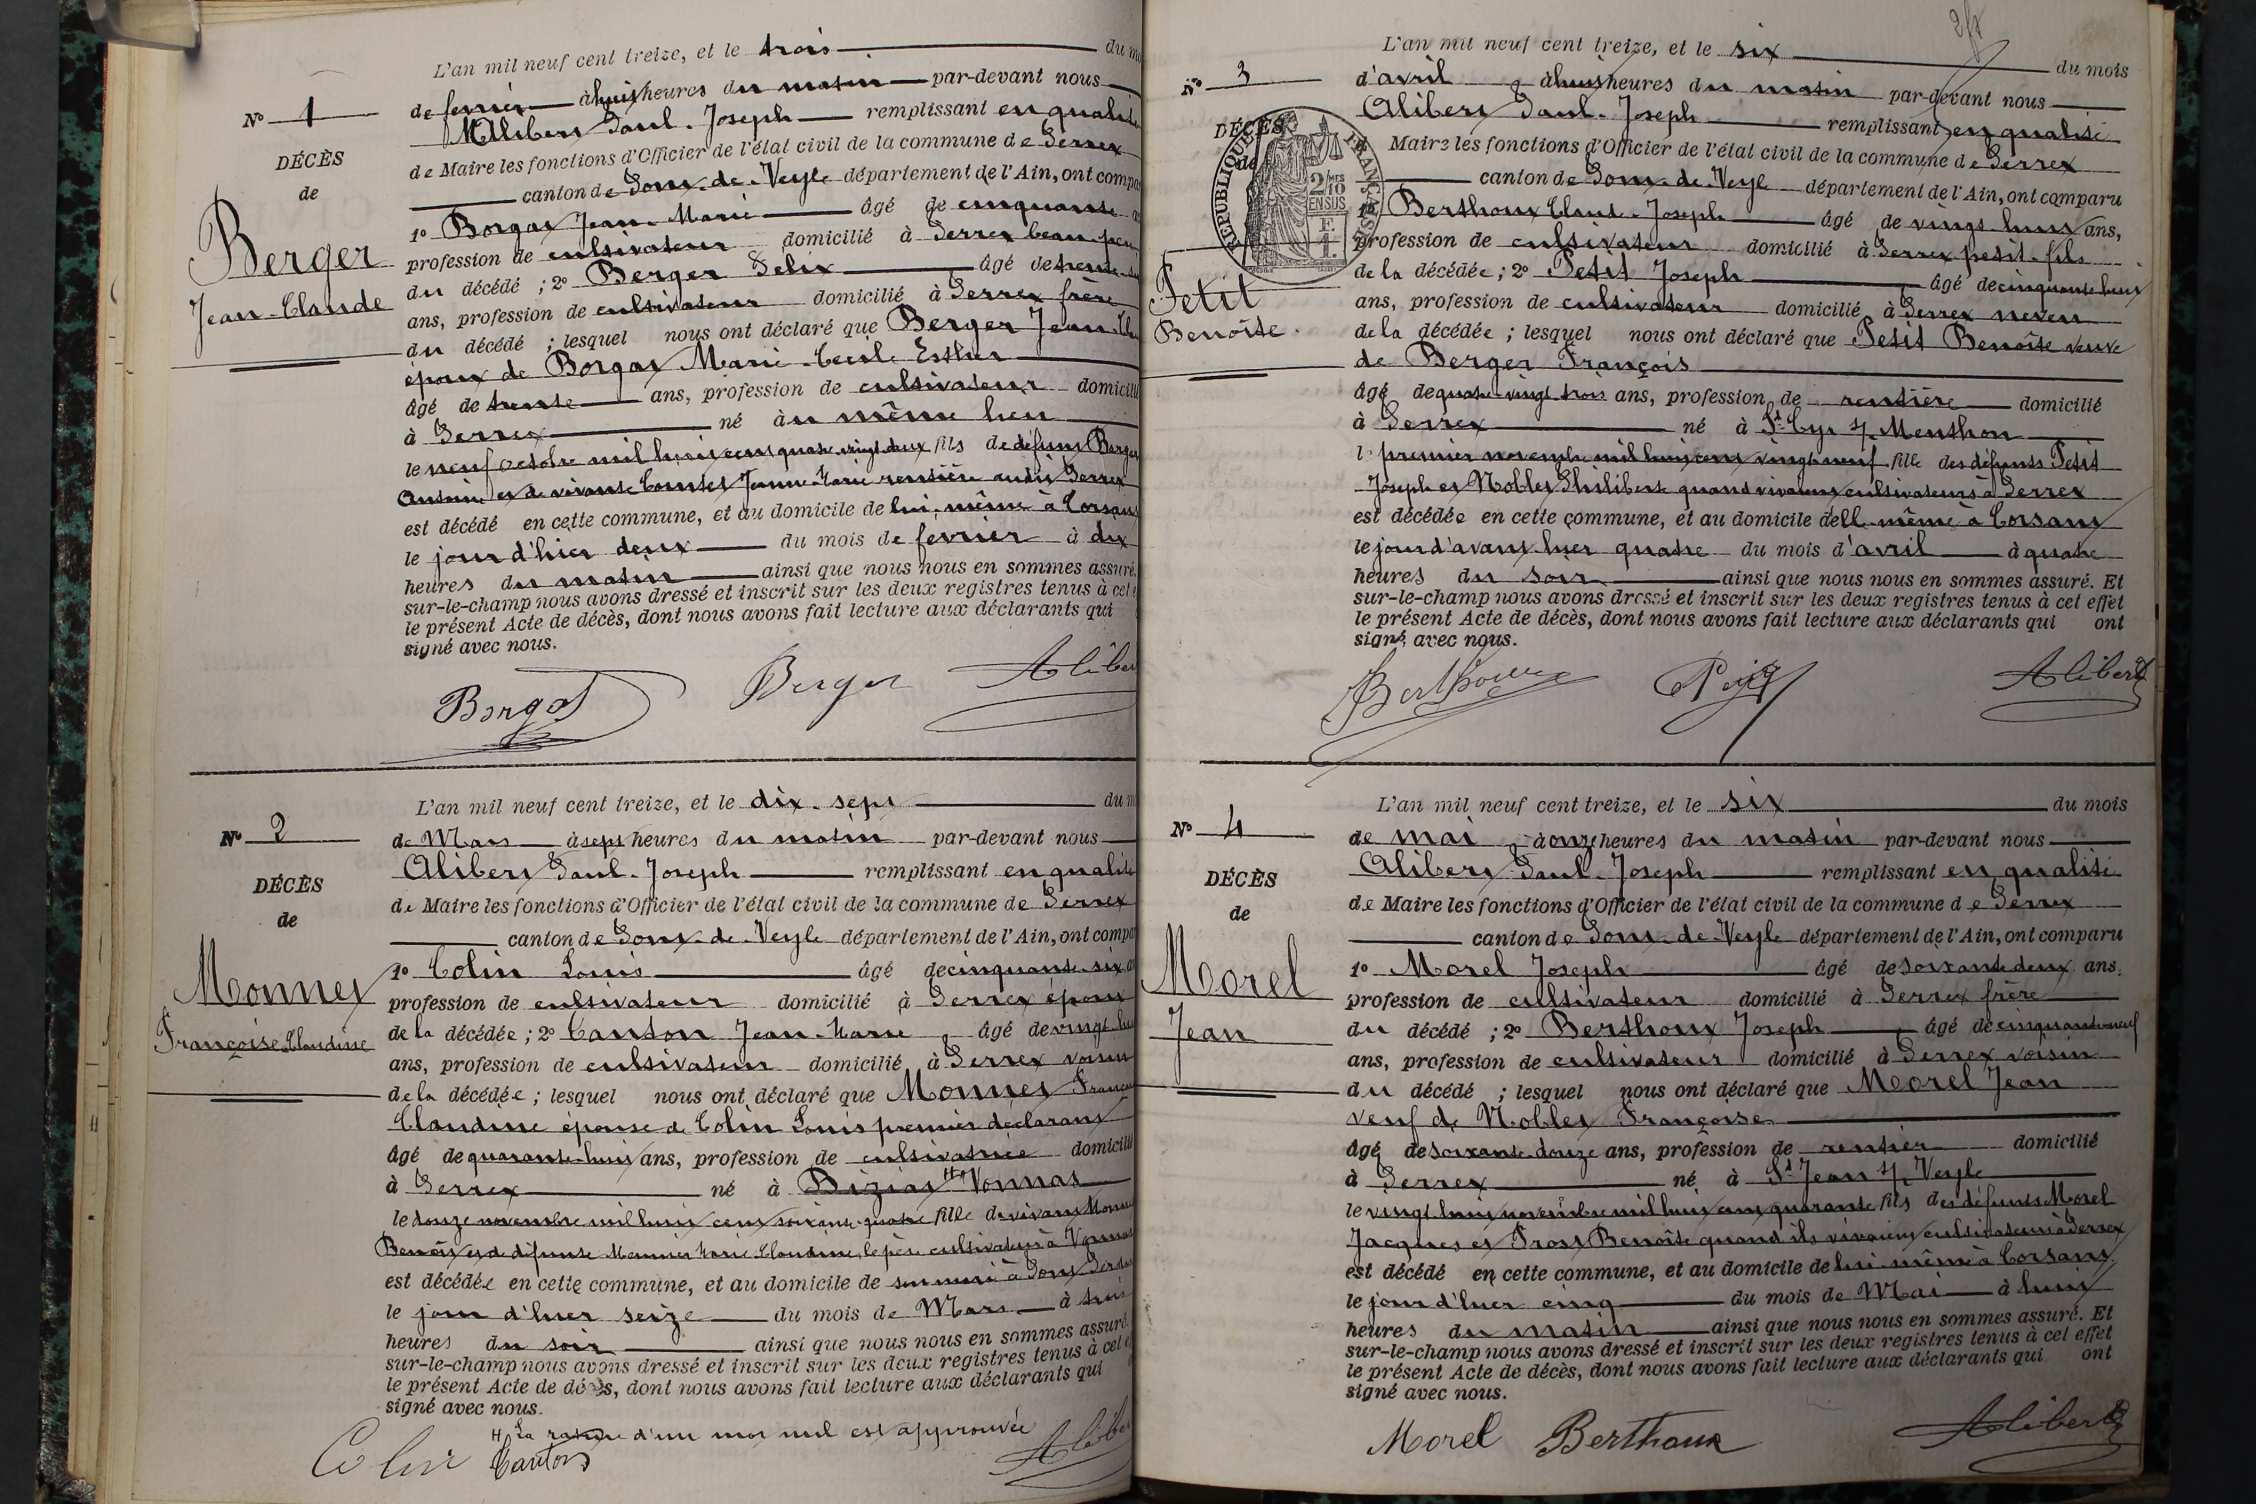 N° 1
DÉCÈS
de
Berger
Jean-Claude
L'an mil neuf cent treize, et le trois du
de février à huit heures du matin par-devant nous
Alibert Paul-Joseph remplissant en qualité
de Maire les fonctions d'Officier de l'état civil de la commune de Perrex
canton de Pont-de-Veyle département de l'Ain, ont
1° Borgat Jean-Marie âgé de cinquante
profession de cultivateur domicilié à Perrex beau-père
du décédé ; 2° Berger Félix âgé de trente
ans, profession de cultivateur domicilié à Perrex frère
du décédé ; lesquel nous ont déclaré que Berger Jean
époux de Borgat Marie-Cécile Esther
âgé de trente ans, profession de cultivateur domicilié
à Perrex né à au même lieu
le neuf octobre mil huit cent quatre-vingt-deux fils de défunt Berger
Antoine et de vivante Comtet Jeanne-Marie rentière audit Perrex
est décédé en cette commune, et au domicile de lui-même à Corsant
le jour d'hier deux du mois de février à dix
heures du matin ainsi que nous nous en sommes assuré.
sur-le-champ nous avons dressé et inscrit sur les deux registres tenus à cet
le présent Acte de décès, dont nous avons fait lecture aux déclarants qui
signé avec nous.
Borgat Berger Alibert
N° 2
DÉCÈS
de
Monnet
Françoise Claudine
L'an mil neuf cent treize, et le dix-sept du
de Mars à sept heures du matin par-devant nous
Alibert Paul-Joseph remplissant en qualité
de Maire les fonctions d'Officier de l'état civil de la commune de Perrex
canton de Pont-de-Veyle département de l'Ain, ont
1° Colin Louis âgé de cinquante-six
profession de cultivateur domicilié à Perrex époux
de la décédée ; 2° Canton Jean-Marie âgé de vingt
ans, profession de cultivateur domicilié à Perrex voisin
de la décédée ; lesquel nous ont déclaré que Monnet
Claudine épouse de Colin Louis premier déclarant
âgé de quarante-huit ans, profession de cultivatrice domicilié
à Perrex né à Biziat H Vonnas
le douze novembre mil huit cent soixante-quatre fille de vivant Monnet
Benoît et de défunte Meunier Marie Claudine, le père cultivateur à Vonnas
est décédée en cette commune, et au domicile de son mari à Pont
le jour d'hier seize du mois de Mars à
heures du soir ainsi que nous nous en sommes assuré.
sur-le-champ nous avons dressé et inscrit sur les deux registres tenus à cet
le présent Acte de décès, dont nous avons fait lecture aux déclarants qui
signé avec nous.
H La rature d'un mot nul est approuvée
Colin Canton Alibert
N° 3
DÉCÈS
de
RÉPUBLIQUE FRANÇAISE
2/10
EN SUS
Petit
Benoîte.
L'an mil neuf cent treize, et le six du mois
d'avril à huit heures du matin par-devant nous
Alibert Paul-Joseph remplissant en qualité
Maire les fonctions d'Officier de l'état civil de la commune de Perrex
canton de Pont-de-Veyle département de l'Ain, ont comparu
1° Berthoux Claude-Joseph âgé de vingt-huit ans,
profession de cultivateur domicilié à Perrex petit-fils
de la décédée ; 2° Petit Joseph âgé de cinquante-huit
ans, profession de cultivateur domicilié à Perrex neveu
de la décédée ; lesquel nous ont déclaré que Petit Benoîte veuve
de Berger François
âgé de quatre-vingt-trois ans, profession de rentière domicilié
à Perrex né à St Cyr s/ Menthon
le premier novembre mil huit cent vingt-neuf fille des défunts Petit
Joseph et Noblet Philiberte quand vivaient cultivateurs à Perrex
est décédée en cette commune, et au domicile d'elle-même à Corsant
le jour d'avant-hier quatre du mois d'avril à quatre
heures du soir ainsi que nous nous en sommes assuré. Et
sur-le-champ nous avons dressé et inscrit sur les deux registres tenus à cet effet
le présent Acte de décès, dont nous avons fait lecture aux déclarants qui ont
signé avec nous.
Berthoux Petit Alibert
N° 4
DÉCÈS
de
Morel
Jean
L'an mil neuf cent treize, et le six du mois
de mai à onze heures du matin par-devant nous
Alibert Paul-Joseph remplissant en qualité
de Maire les fonctions d'Officier de l'état civil de la commune de Perrex
canton de Pont-de-Veyle département de l'Ain, ont comparu
1° Morel Joseph âgé de soixante-deux ans,
profession de cultivateur domicilié à Perrex frère
du décédé ; 2° Berthoux Joseph âgé de cinquante-neuf
ans, profession de cultivateur domicilié à Perrex voisin
du décédé ; lesquel nous ont déclaré que Morel Jean
veuf de Noblet Françoise
âgé de soixante-douze ans, profession de rentier domicilié
à Perrex né à St Jean s/ Veyle
le vingt-huit novembre mil huit cent quarante fils des défunts Morel
Jacques et Prost Benoîte quand ils vivaient cultivateurs à Perrex
est décédé en cette commune, et au domicile de lui-même à Corsant
le jour d'hier cinq du mois de Mai à huit
heures du matin ainsi que nous nous en sommes assuré. Et
sur-le-champ nous avons dressé et inscrit sur les deux registres tenus à cet effet
le présent Acte de décès, dont nous avons fait lecture aux déclarants qui ont
signé avec nous.
Morel Berthoux Alibert